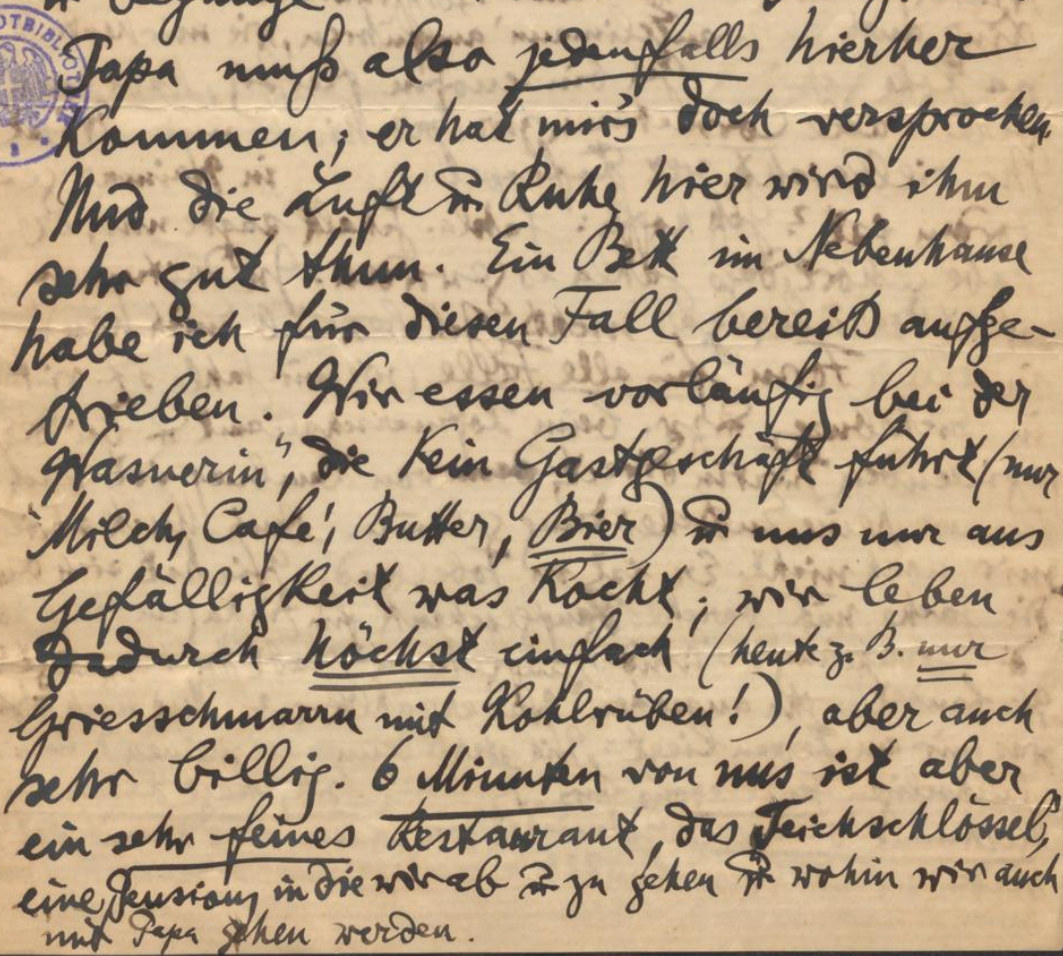 Papa muß also jedenfalls hierher
kommen; er hat mir's doch versprochen
Und die Luft u. Ruhe hier wird ihm
sehr gut thun. Ein Bett im Nebenhause
habe ich für diesen Fall bereits aufge-
trieben. Wir essen vorläufig bei der
"Wasnerin", die kein Gastgeschäft führt (nur
Milch, Café, Butter, Bier) u. uns nur aus
Gefälligkeit was kocht; wir leben
dadurch höchst einfach (heute z. B. nur
Griesschmarrn mit Kohlrüben!), aber auch
sehr billig. 6 Minuten von uns ist aber
ein sehr feines Restaurant, das Teichschlössel,
eine Pension, in die wir ab u. zu gehen u. wohin wir auch
mit Papa gehen werden.